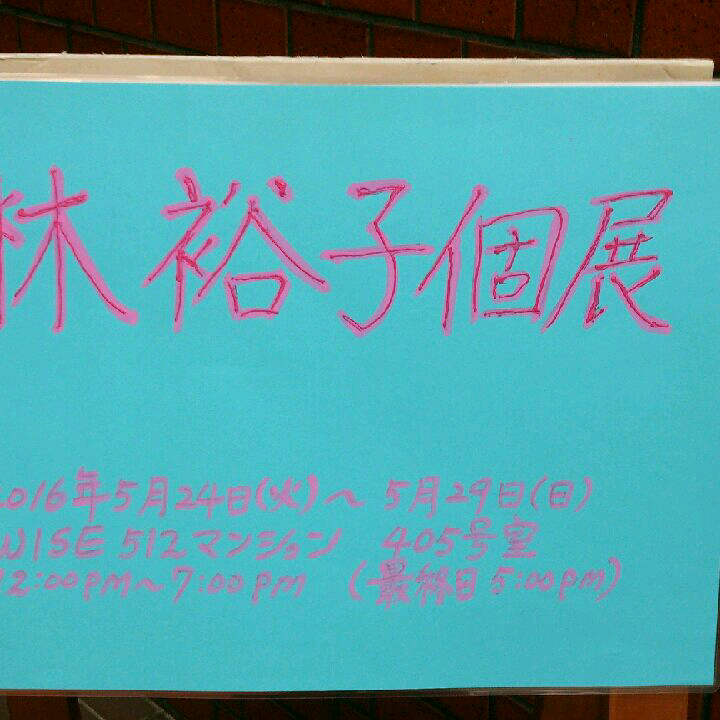 林 裕子個展
2016年5月24日(火)~ 5月29日(日)
WISE 512マンション 405号室
12:00PM~7:00PM (最終日 5:00PM)